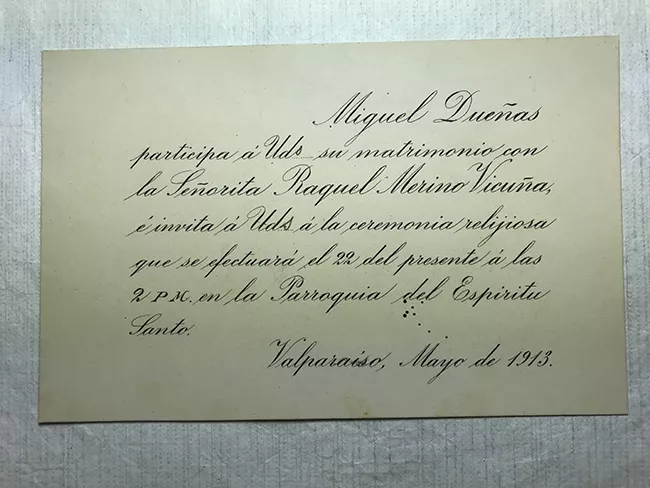 Miguel Dueñas
participa á Uds su matrimonio con
la Señorita Raquel Merino Vicuña,
é invita á Uds á la ceremonia relijiosa
que se efectuará el 22 del presente á las
2 P.M. en la Parroquia del Espiritu
Santo.
Valparaiso, Mayo de 1913.